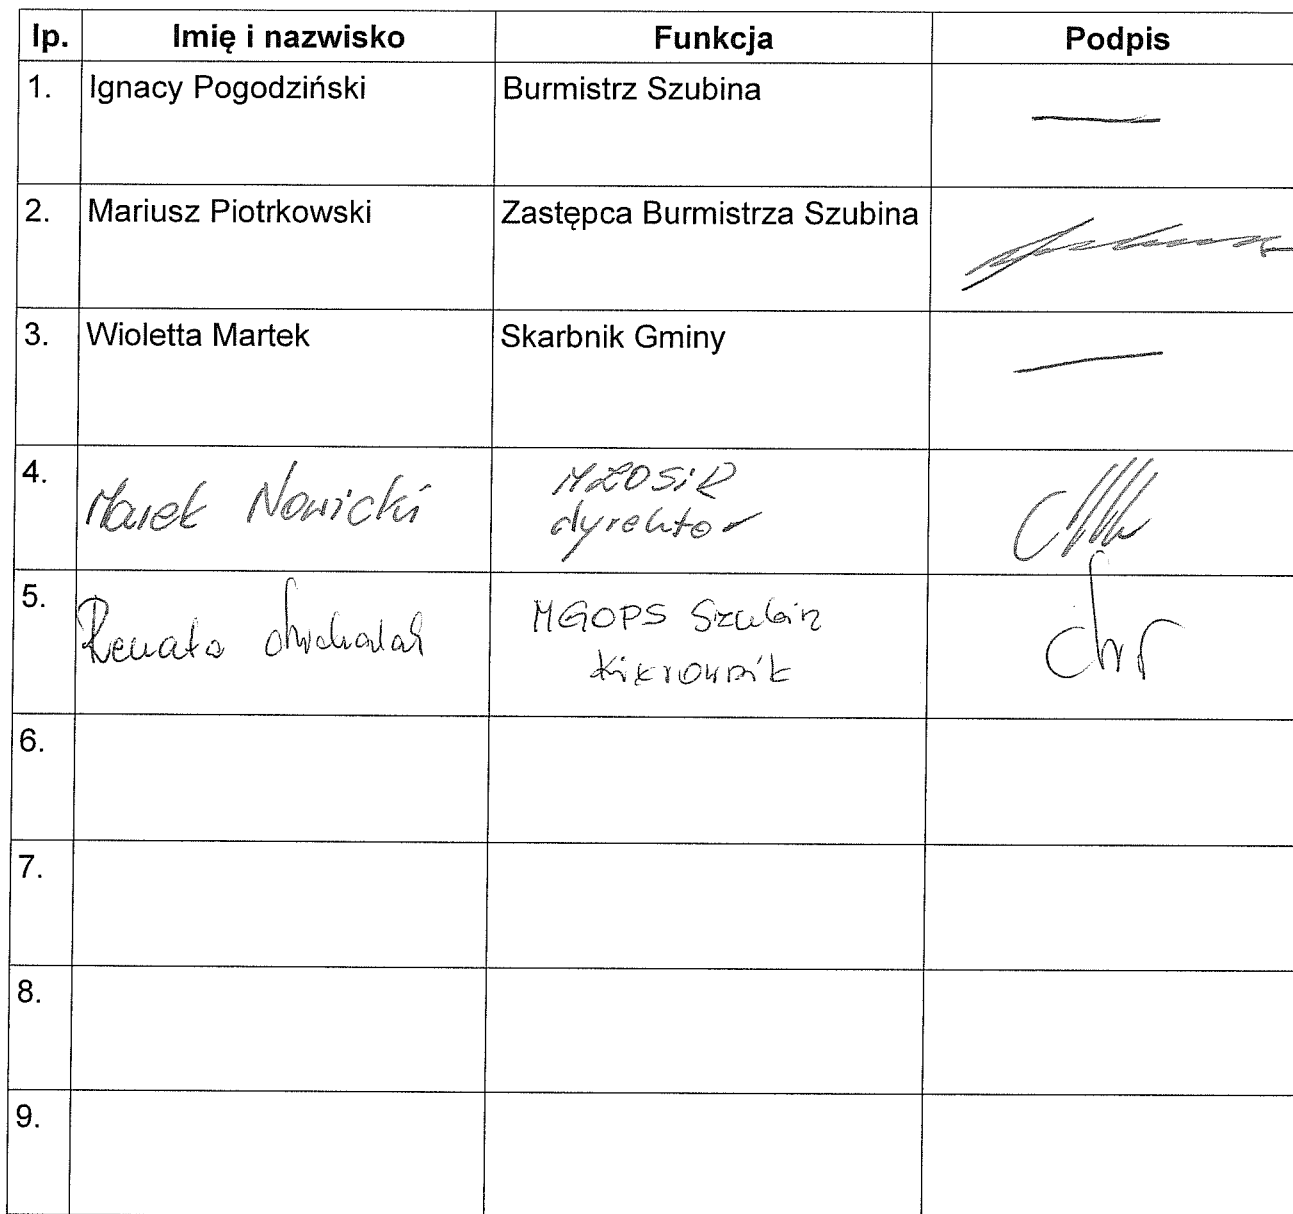 lp. Imię i nazwisko Funkcja Podpis
1. Ignacy Pogodziński Burmistrz Szubina
2. Mariusz Piotrkowski Zastępca Burmistrza Szubina
3. Wioletta Martek Skarbnik Gminy
4. Marek Nowicki MLOSiR
dyrektor
5. Renata MGOPS Szubin
kierownik
6.
7.
8.
9.